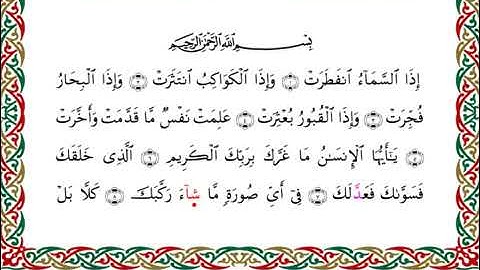 بِسْمِ اللَّهِ الرَّحْمَٰنِ الرَّحِيمِ
إِذَا السَّمَاءُ انفَطَرَتْ ١ وَإِذَا الْكَوَاكِبُ انتَثَرَتْ ٢ وَإِذَا الْبِحَارُ
فُجِّرَتْ ٣ وَإِذَا الْقُبُورُ بُعْثِرَتْ ٤ عَلِمَتْ نَفْسٌ مَّا قَدَّمَتْ وَأَخَّرَتْ
٥ يَٰٓأَيُّهَا الْإِنسَٰنُ مَا غَرَّكَ بِرَبِّكَ الْكَرِيمِ ٦ الَّذِي خَلَقَكَ
فَسَوَّىٰكَ فَعَدَلَكَ ٧ فِىٓ أَىِّ صُورَةٍ مَّا شَآءَ رَكَّبَكَ ٨ كَلَّا بَلْ